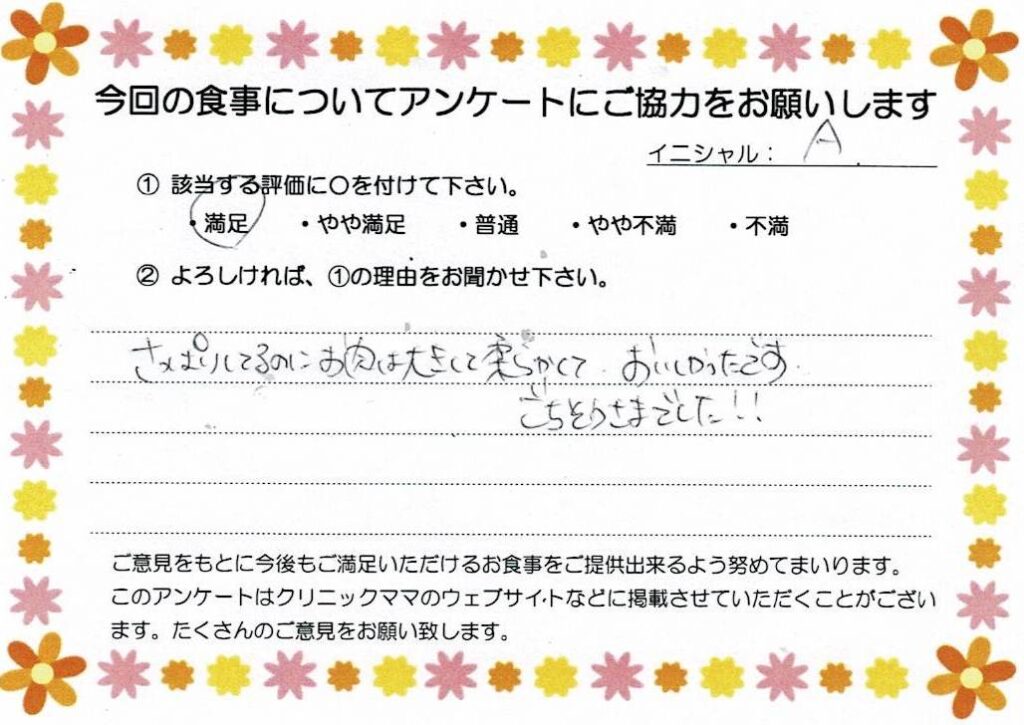 今回の食事についてアンケートにご協力をお願いします
イニシャル： A.
① 該当する評価に〇を付けて下さい。
・満足 ・やや満足 ・普通 ・やや不満 ・不満
② よろしければ、①の理由をお聞かせ下さい。
さっぱりしてるのにお肉は大きくて柔らかくて、おいしかったです。
ごちそうさまでした!!
ご意見をもとに今後もご満足いただけるお食事をご提供出来るよう努めてまいります。
このアンケートはクリニックママのウェブサイトなどに掲載させていただくことがござい
ます。たくさんのご意見をお願い致します。